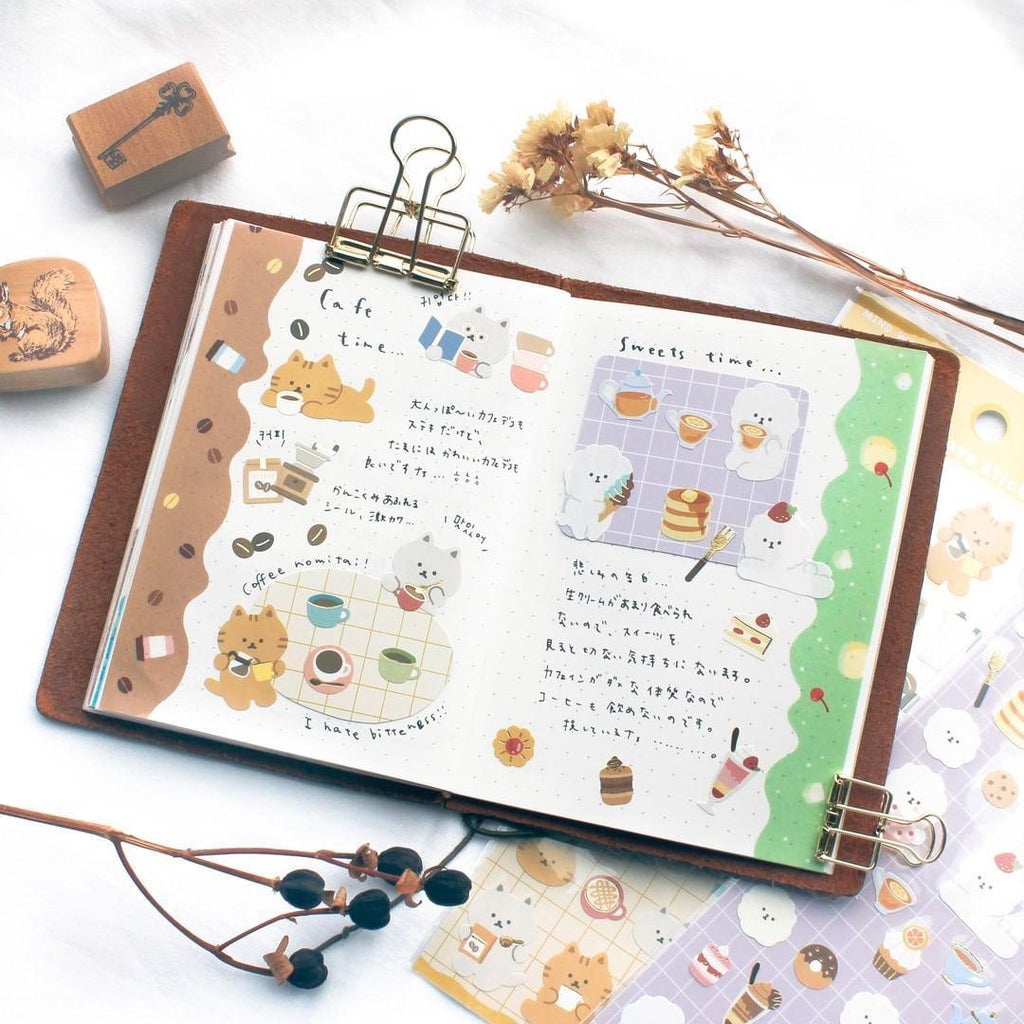 Cafe
time...
귀엽다!!
大人っぽ〜いカフェデコも
ステキだけど、
たまには かわいいカフェデコも
良いですナ...
커피
かんこくみあふれる
シール、激カワ...
Coffee nomitai!
I hate bitterness...
Sweets time...
悲しみの告白...
生クリームがあまり食べられ
ないので、スイーツを
見ると切ない気持ちになります。
カフェインがダメな体質なので
コーヒーも飲めないのです。